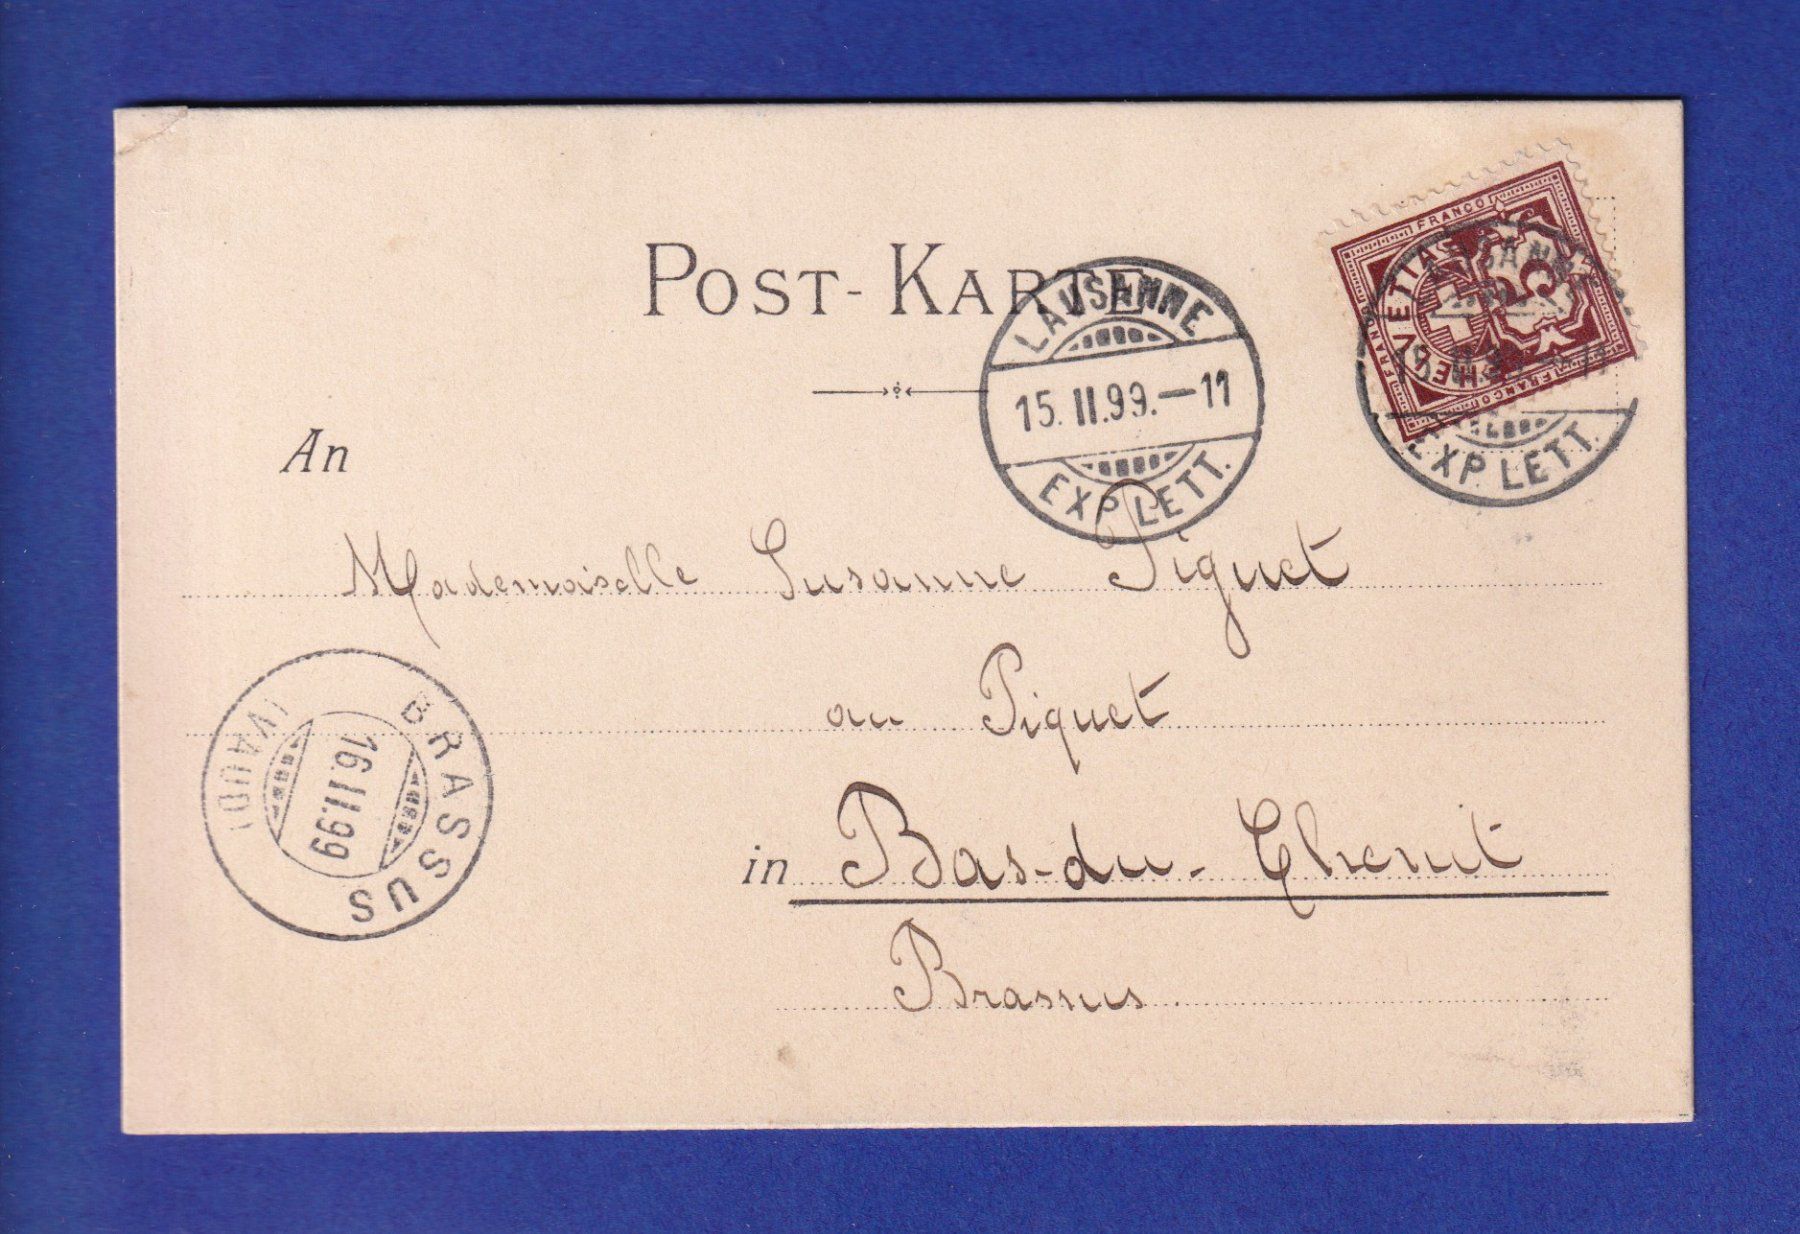 POST-KARTE
LAUSANNE
15.II.99.—11
EXP. LETT.
FRANCO
HELVETIA
5
FRANCO
FRANCO
LAUSANNE
15.II.99.—11
EXP. LETT.
An
Mademoiselle Susanne Piguet
au Piguet
in Bas-du-Chenit
Brassus
BRASSUS
16.II.99
(VAUD)